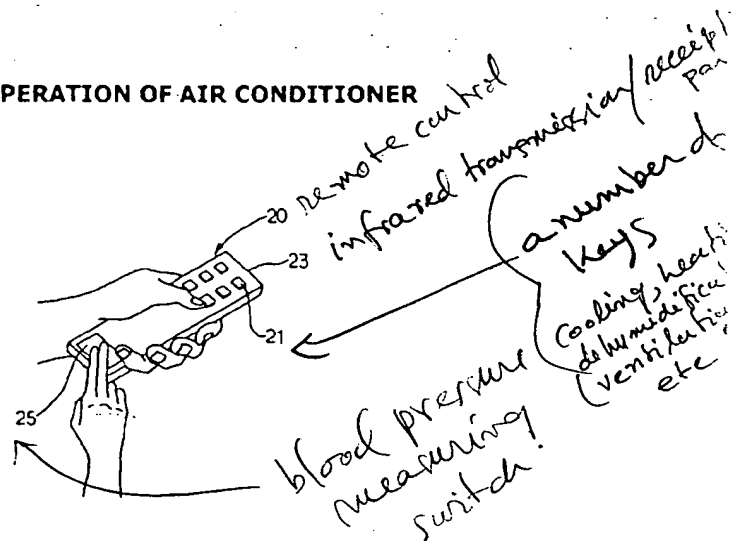 PERATION OF AIR CONDITIONER
20 remote control
23 infrared transmission/receipt
21
25
a number
keys
cooling,
ventilation
etc
blood pressure
measuring
switch.